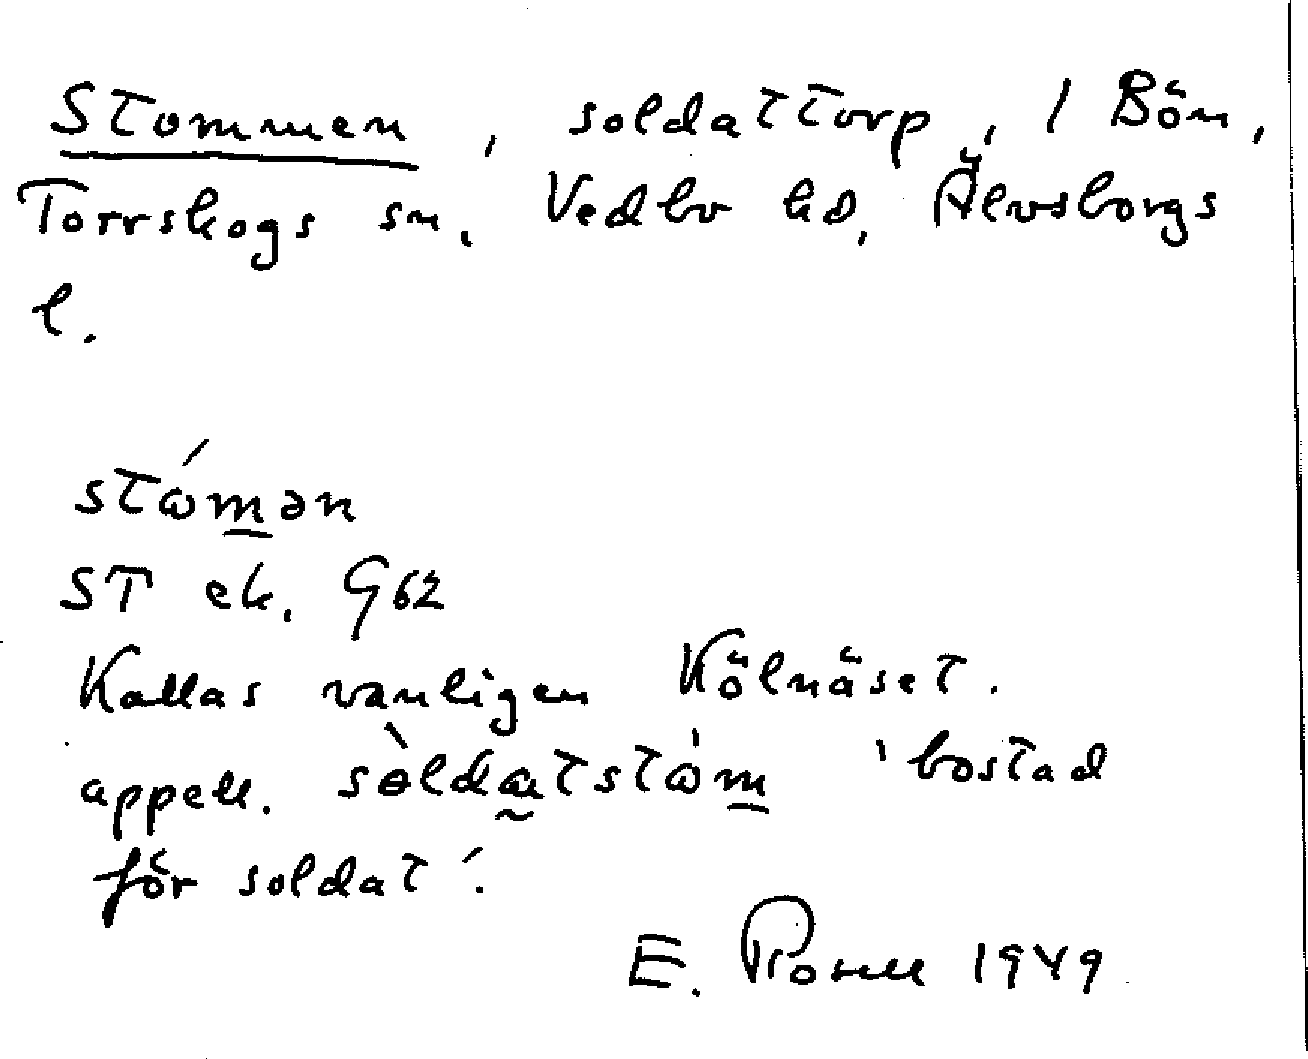 Stommen, soldattorp, 1 Bön,
Torrskogs sn. Vedbo hd, Älvsborgs
l.
stώmən
ST ek. G62
Kallas vanligen Kölnäset.
appell. sòldatstὼm 'bostad
för soldat'.
E. 1949